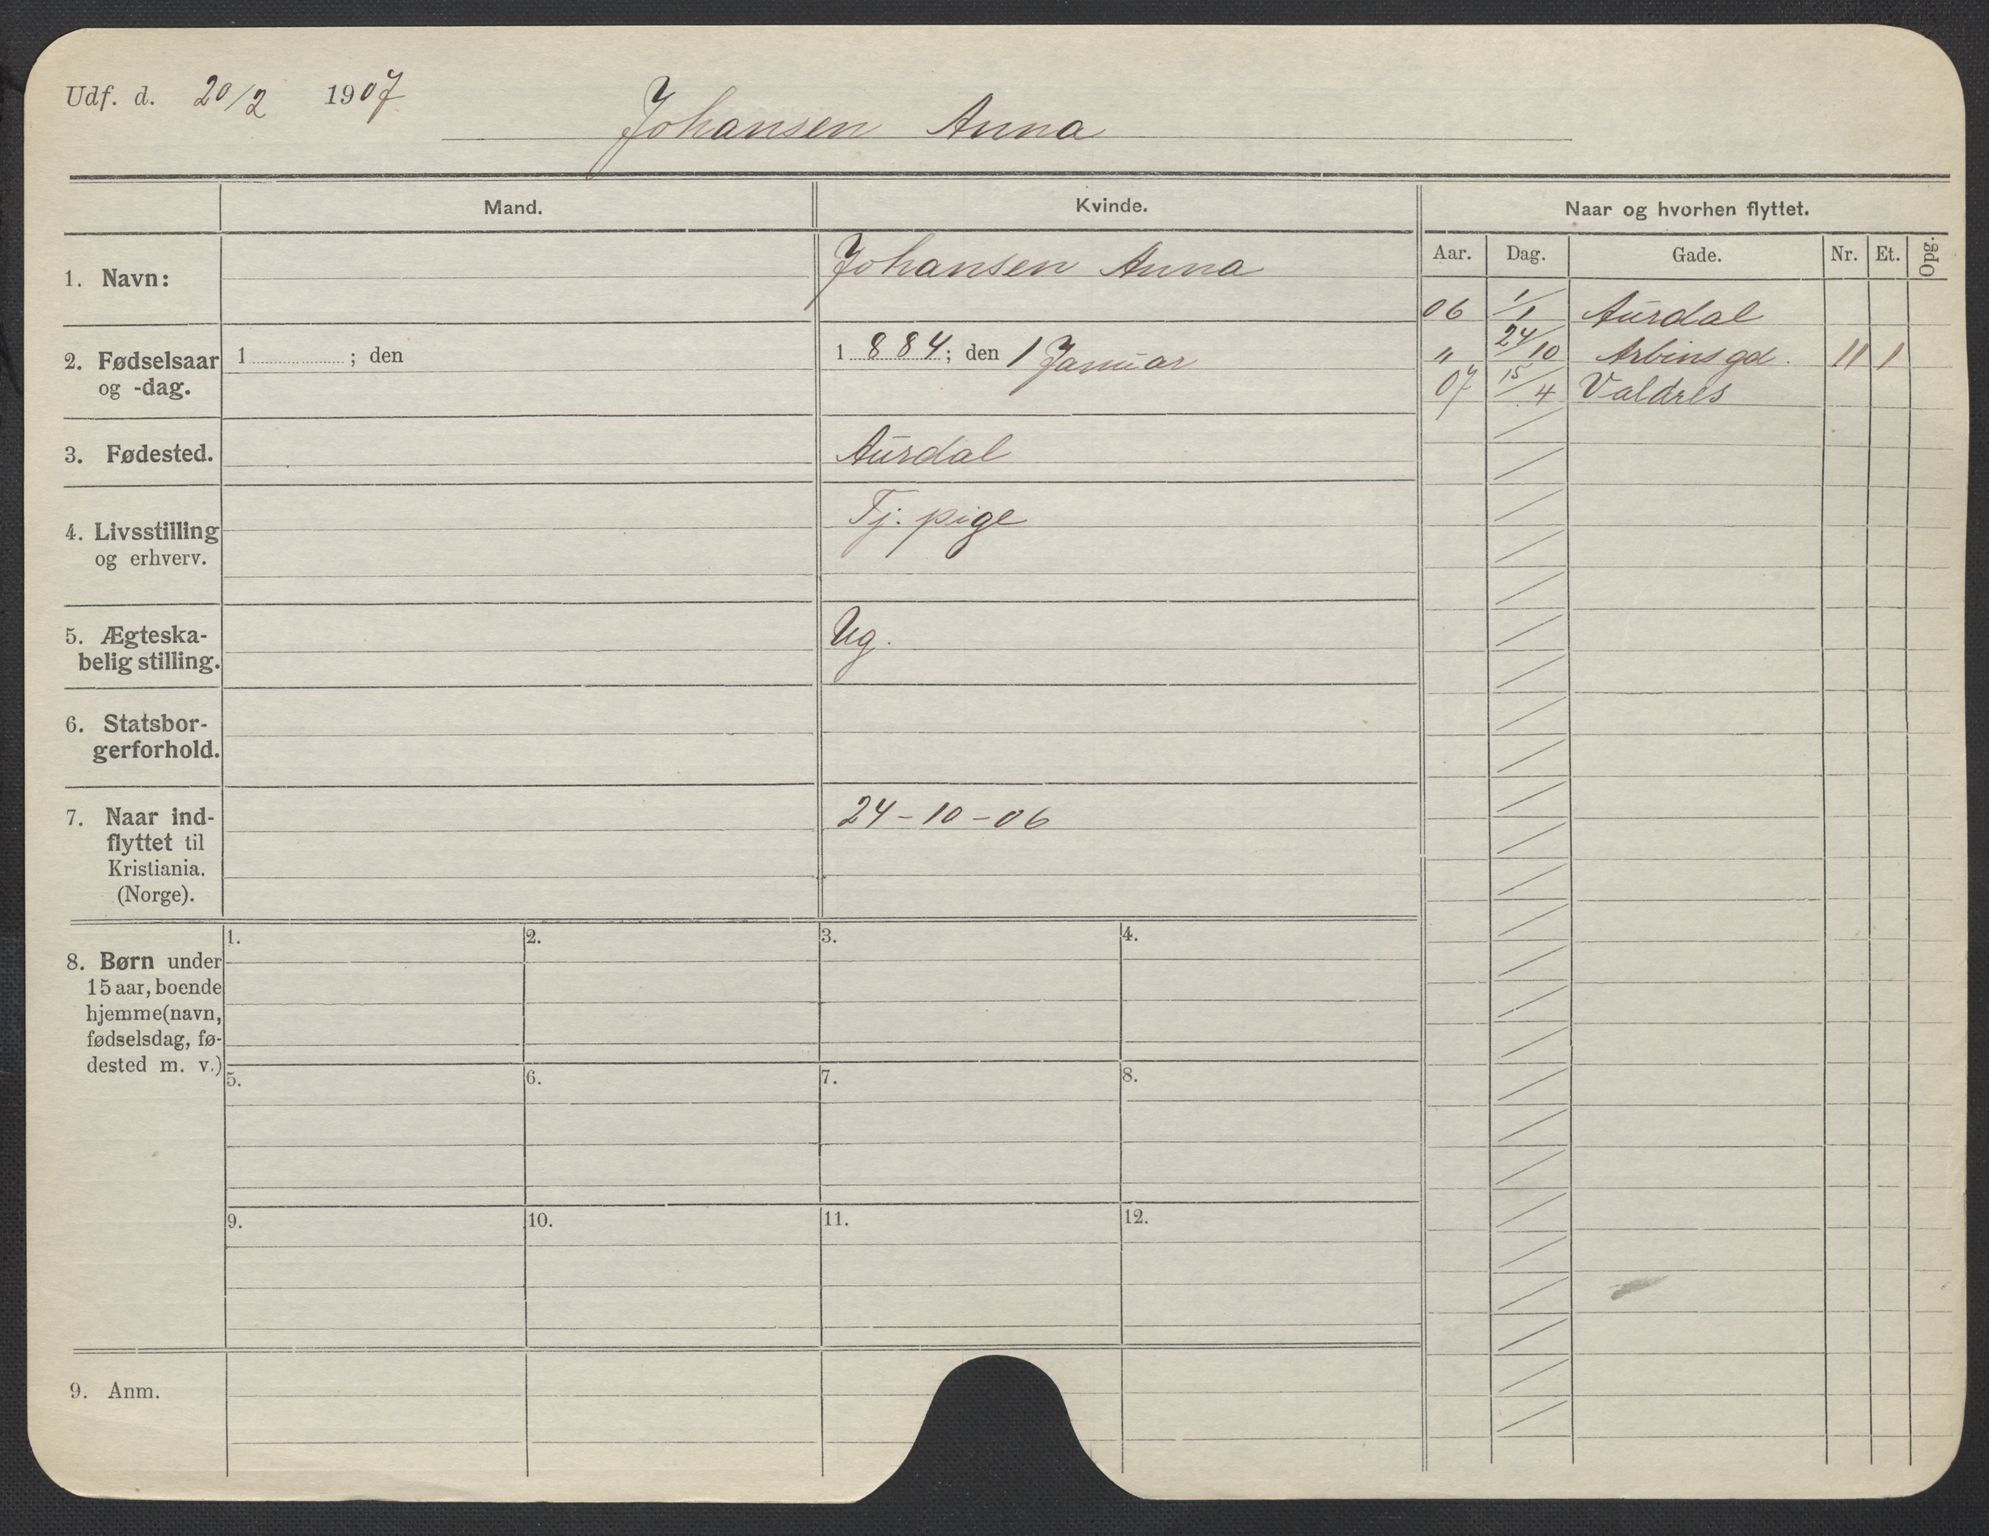 Udf. d. 20/2 1907
Johansen Anna
Mand.
Kvinde.
Naar og hvorhen flyttet.
Aar. Dag. Gade. Nr. Et. Opg.
1. Navn:
Johansen Anna
06 1/1 Aurdal
" 24/10 Arbinsgd. 11 1
07 15/4 Valdres
2. Fødselsaar
og -dag.
1 ; den
1 884; den 1 Januar
3. Fødested.
Aurdal
4. Livsstilling
og erhverv.
Tj. pige
5. Ægteska-
belig stilling.
Ug.
6. Statsbor-
gerforhold.
7. Naar ind-
flyttet til
Kristiania.
(Norge).
24-10-06
8. Børn under
15 aar, boende
hjemme (navn,
fødselsdag, fø-
dested m. v.)
1. 2. 3. 4.
5. 6. 7. 8.
9. 10. 11. 12.
9. Anm.